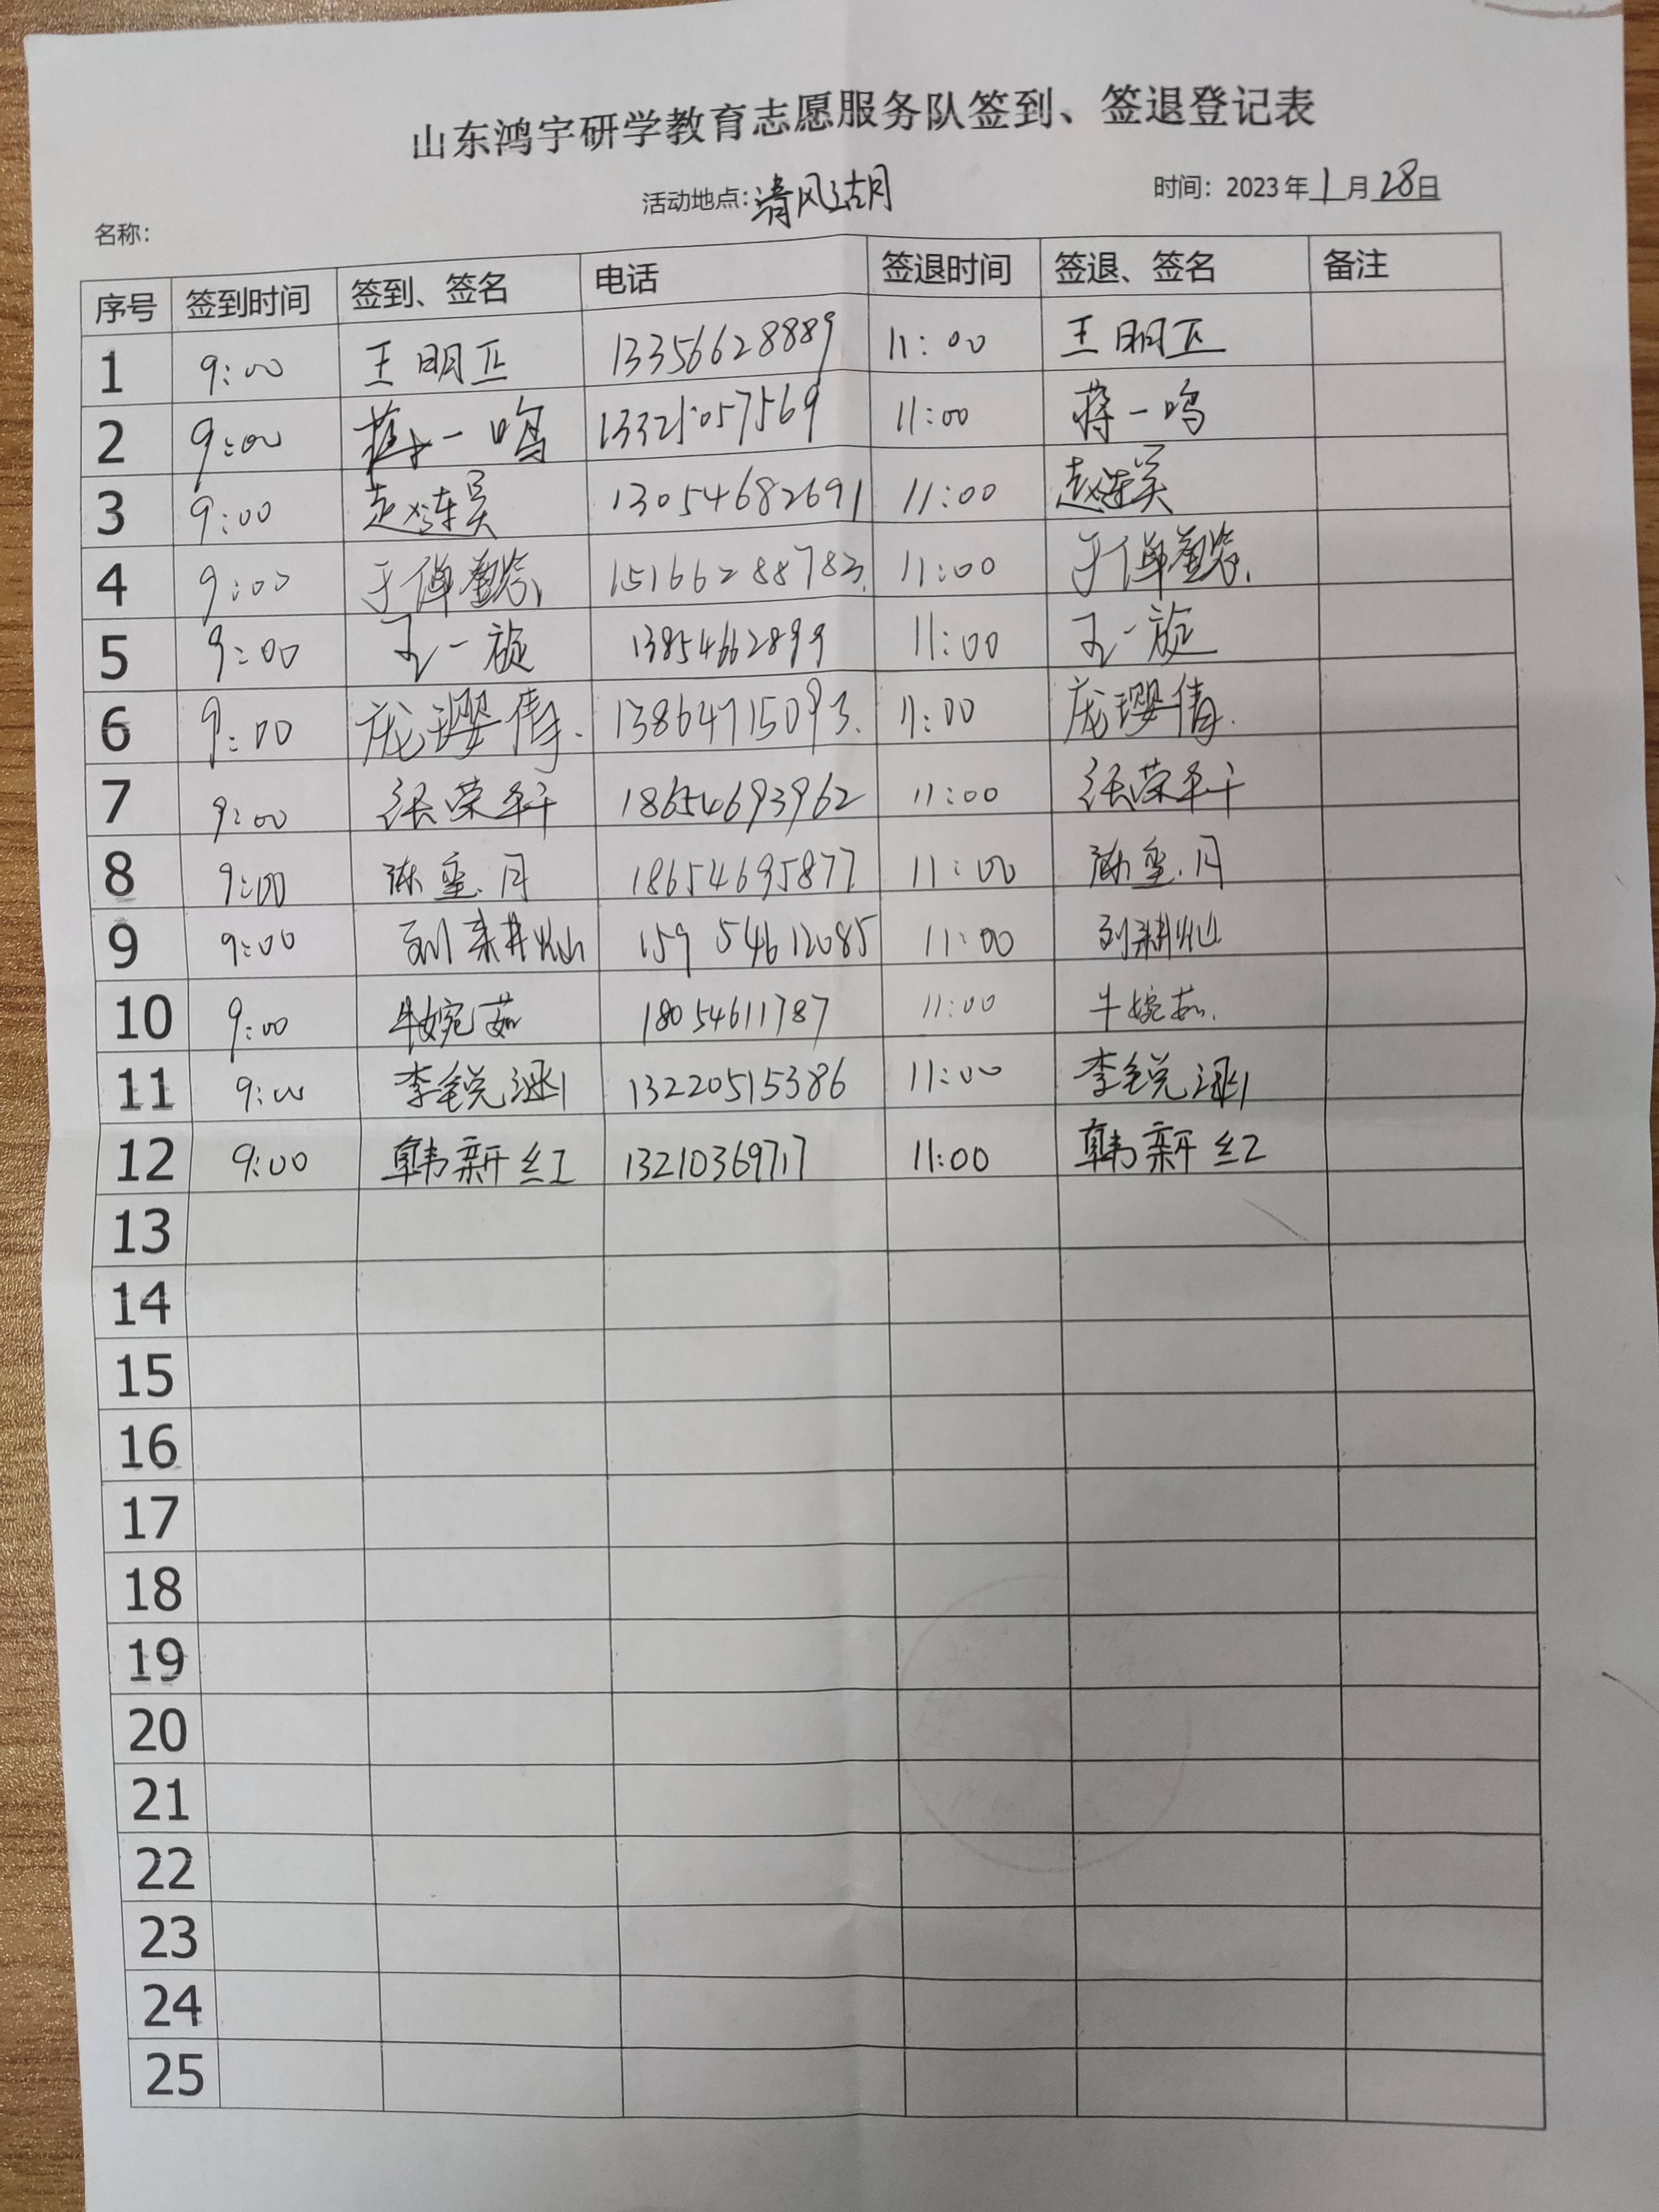 山东鸿宇研学教育志愿服务队签到、签退登记表
活动地点：清风湖 时间：2023年1月28日
名称：
序号 签到时间 签到、签名 电话 签退时间 签退、签名 备注
1 9:00 王明正 13356628889 11:00 王明正
2 9:00 蒋一鸣 13321057569 11:00 蒋一鸣
3 9:00 赵连昊 13054682691 11:00 赵连昊
4 9:00 于倬懿 15166288783 11:00 于倬懿
5 9:00 王一旋 13854662899 11:00 王一旋
6 9:00 庞璎倩. 13864715093. 11:00 庞璎倩.
7 9:00 张荣轩 18654693962 11:00 张荣轩
8 9:00 18654695877 11:00
9 9:00 15954612085 11:00
10 9:00 牛婉茹 18054611787 11:00 牛婉茹.
11 9:00 李锐涵 13220515386 11:00 李锐涵
12 9:00 韩新红 13210369717 11:00 韩新红
13
14
15
16
17
18
19
20
21
22
23
24
25